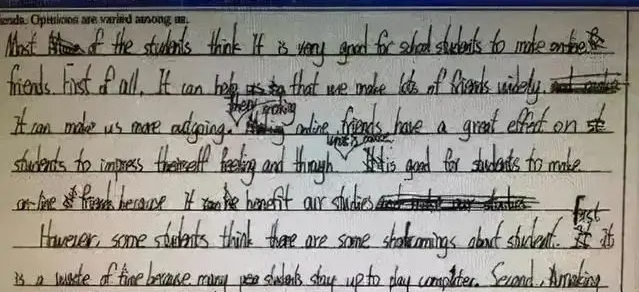 iends. Opinions are varied among us.
Most of the students think It is very good for school students to make on-line
friends. First of all, It can help us that we make lots of friends widely.
It can make us more outgoing. Then, making online friends have a great effect on
students to impress theirself feeling and through. It is good for students to make
on-line friends because it can be benefit our studies
However, some students think there are some shotcomings about student. First, it
is a waste of time because many students stay up to play computer. Second, making